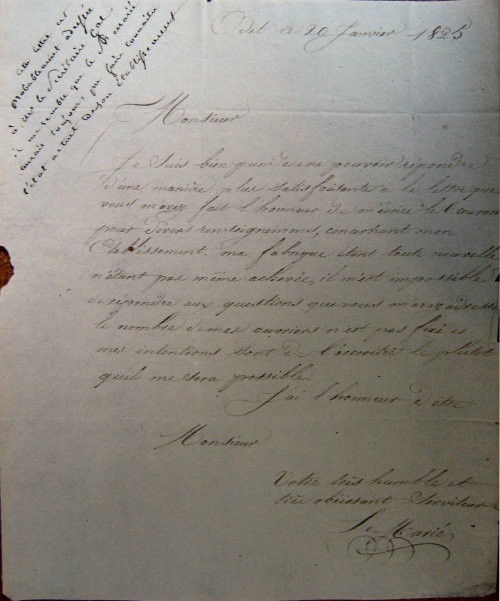 cette lettre est
probablement dressée
à M. le Secrétaire Gal
il me semble que le Sr Marié
aurait toujours pu faire connaître
l'état actuel de son établissement
le 20 Janvier 1825
Monsieur
Je suis bien de ne pouvoir repondre
d'une manière plus satisfaisante a la lettre que
vous m'avez fait l'honneur de m'écrire le
pour divers renseignemens, concernant mon
Etablissement. ma fabrique étant toute nouvelle
n'étant pas même achevée, il m'est impossible
de repondre aux questions que vous m'avez
le nombre de mes ouvriers n'est pas fixé et
mes intentions sont de l'accroitre le plutot
qu'il me sera possible.
J'ai l'honneur d'etre
Monsieur
Votre très humble et
très obéissant Serviteur
Le Marié